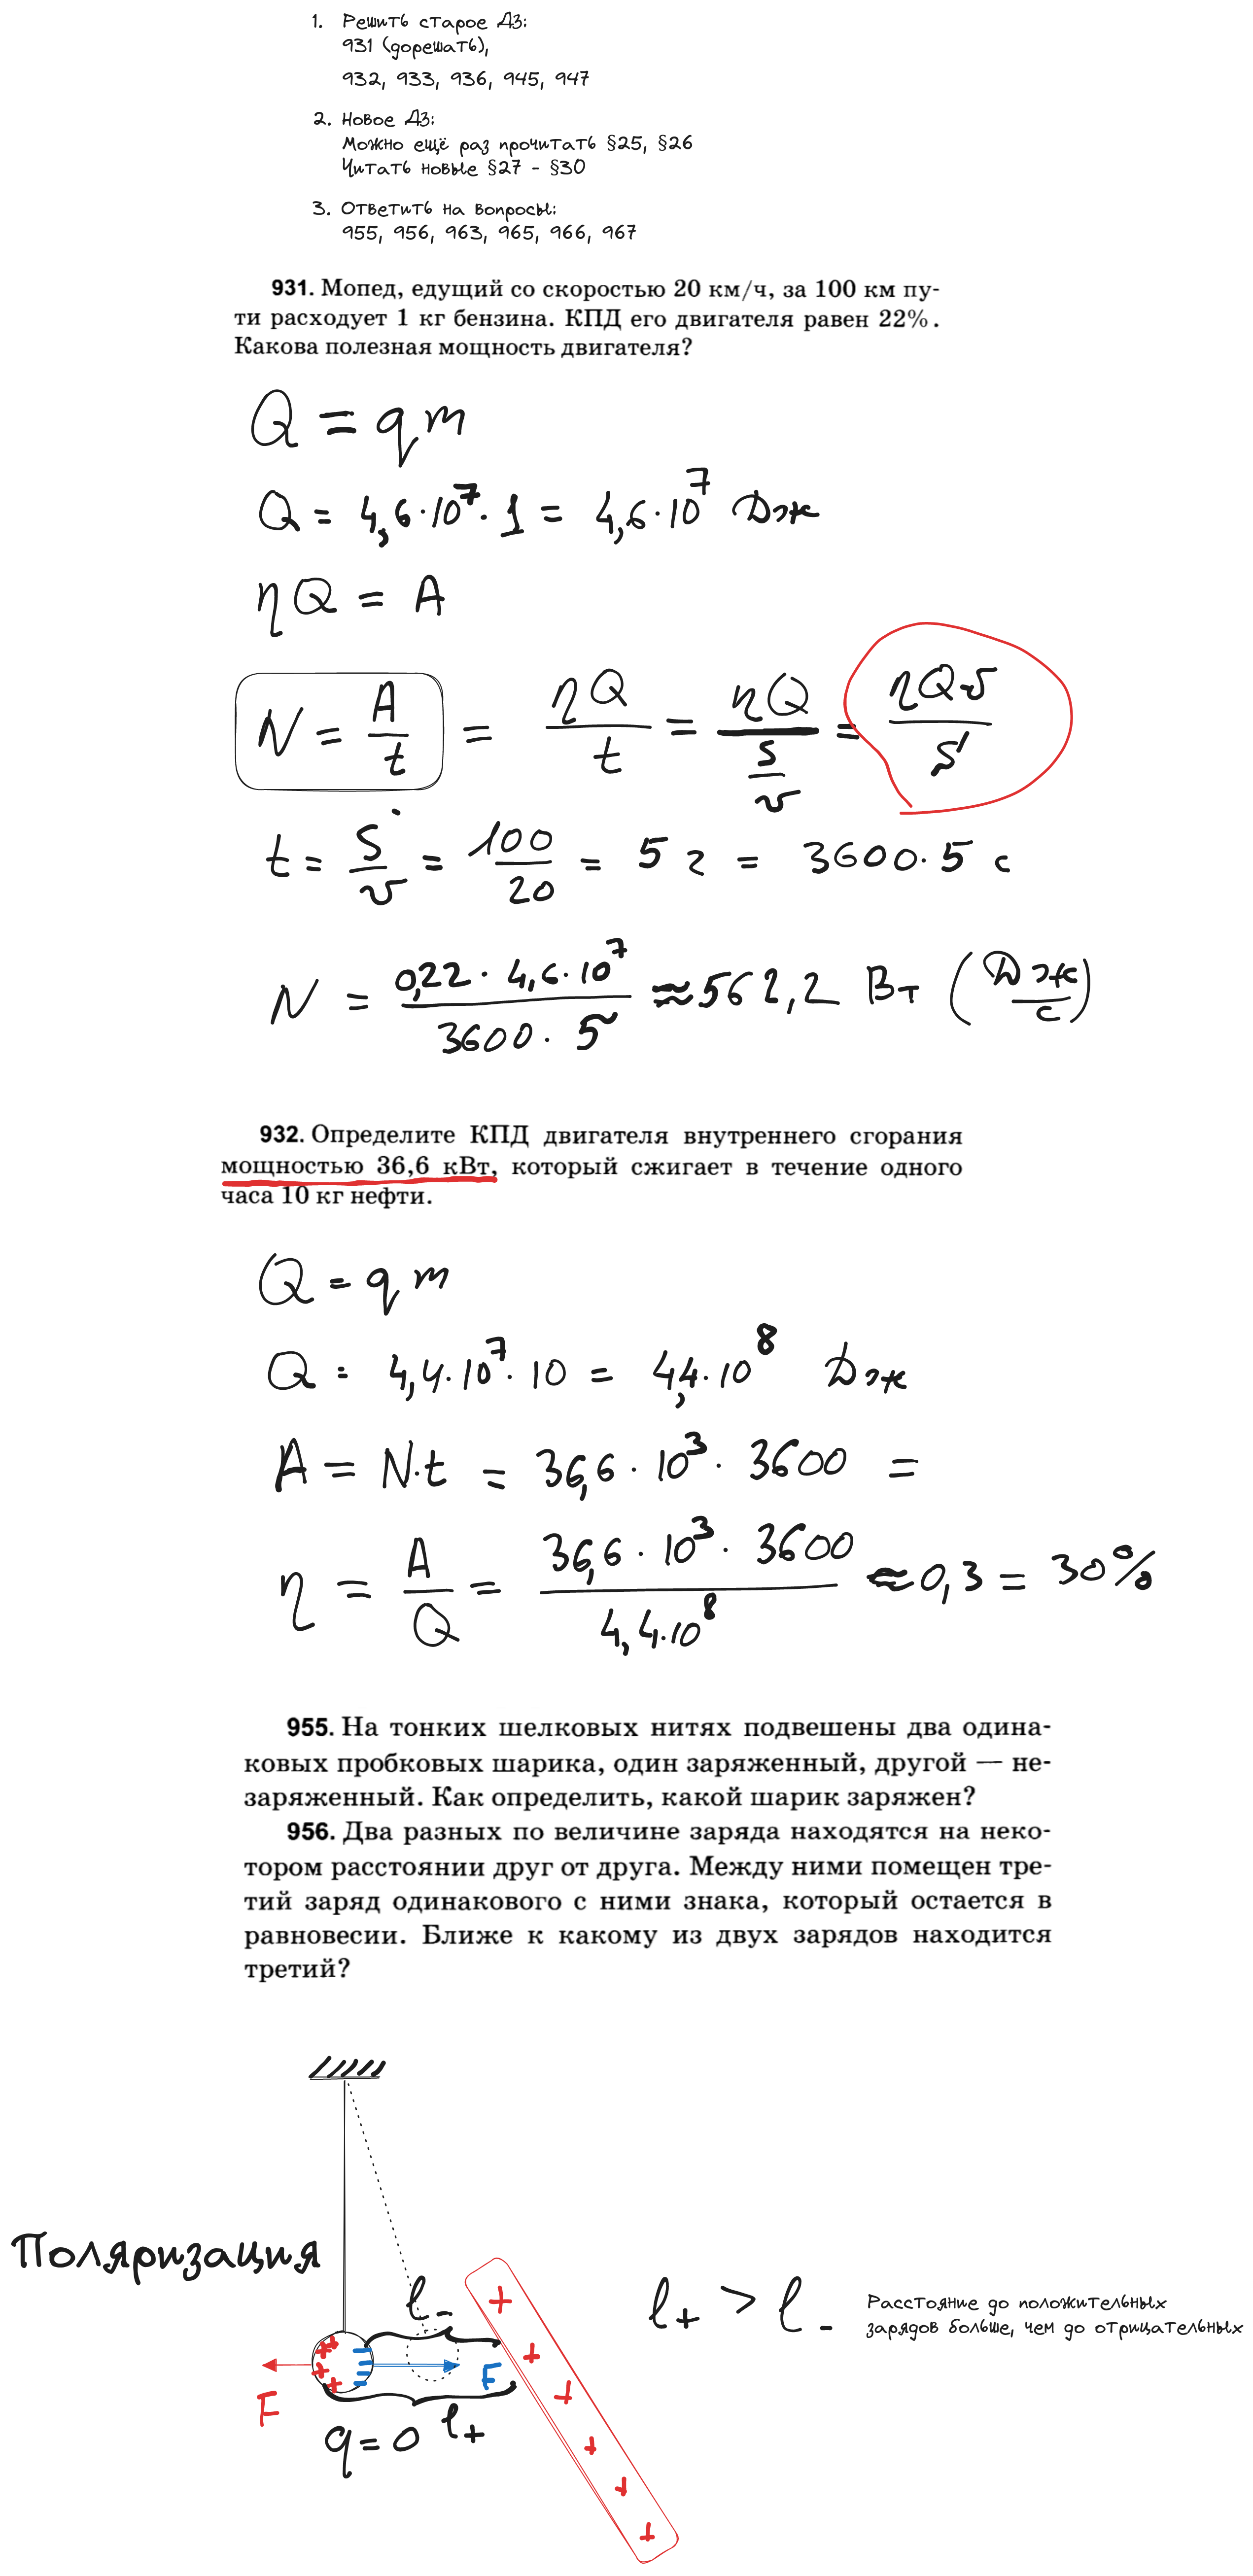 1. Решить старое ДЗ:
931 (дорешать),
932, 933, 936, 945, 947
2. Новое ДЗ:
Можно ещё раз прочитать §25, §26
Читать новые §27 - §30
3. Ответить на вопросы:
955, 956, 963, 965, 966, 967
931. Мопед, едущий со скоростью 20 км/ч, за 100 км пу-
ти расходует 1 кг бензина. КПД его двигателя равен 22%.
Какова полезная мощность двигателя?
Q = qm
Q = 4,6·10⁷·1 = 4,6·10⁷ Дж
ηQ = A
N = A/t = ηQ/t = ηQ/(S/v) = ηQv/S
t = S/v = 100/20 = 5 ч = 3600·5 с
N = (0,22·4,6·10⁷)/(3600·5) ≈ 562,2 Вт (Дж/с)
932. Определите КПД двигателя внутреннего сгорания
мощностью 36,6 кВт, который сжигает в течение одного
часа 10 кг нефти.
Q = qm
Q = 4,4·10⁷·10 = 4,4·10⁸ Дж
A = N·t = 36,6·10³·3600 =
η = A/Q = (36,6·10³·3600)/(4,4·10⁸) ≈ 0,3 = 30%
955. На тонких шелковых нитях подвешены два одина-
ковых пробковых шарика, один заряженный, другой — не-
заряженный. Как определить, какой шарик заряжен?
956. Два разных по величине заряда находятся на неко-
тором расстоянии друг от друга. Между ними помещен тре-
тий заряд одинакового с ними знака, который остается в
равновесии. Ближе к какому из двух зарядов находится
третий?
Поляризация
l₋
+ + + + + +
l₊ > l₋
Расстояние до положительных
зарядов больше, чем до отрицательных
+ + + +
F
F
q = 0
l₊